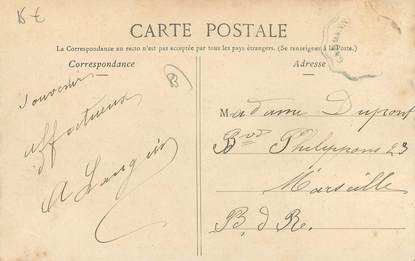 15 €
CARTE POSTALE
La Correspondance au recto n'est pas acceptée par tous les pays étrangers. (Se renseigner à la Poste.)
Correspondance
Adresse
Souvenir
affectueux
A
Madame Dupont
Bvd Philippons 23
Marseille
B. d R.